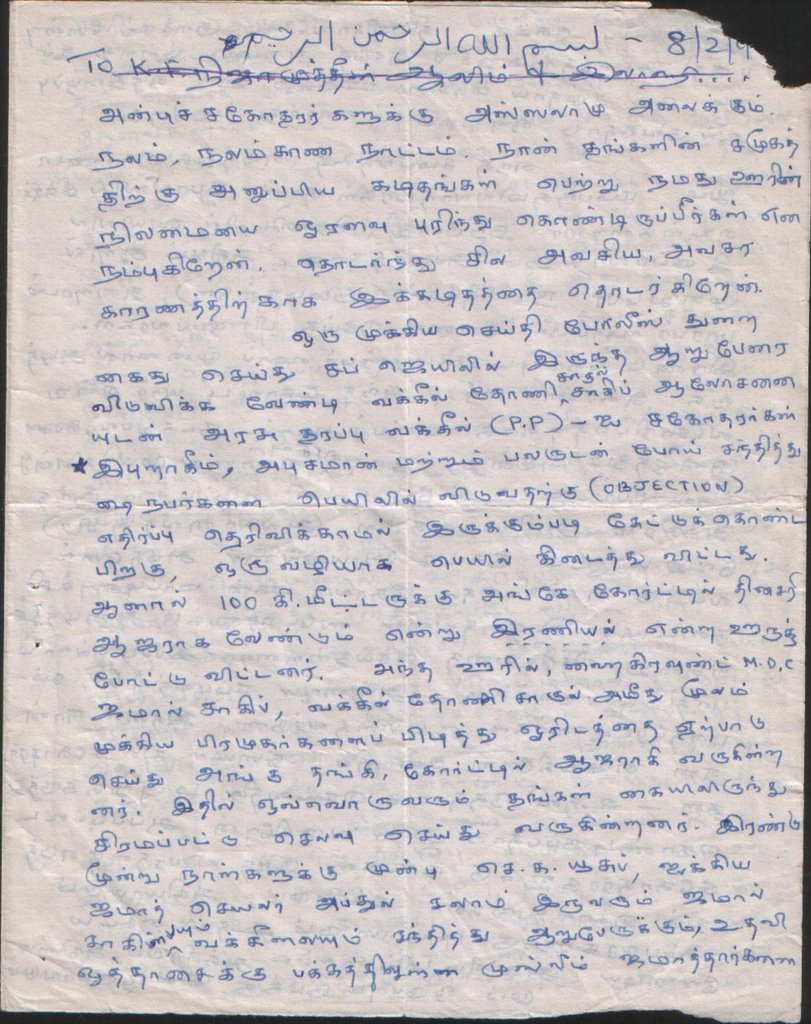 بسم الله الرحمن الرحيم - 8/2/9
To K.F. நிஜாமுத்தீன் ஆலிம் & இலாஹி....
அன்புச் சகோதரர்களுக்கு அஸ்ஸலாமு அலைக்கும்.
நலம், நலம்காண நாட்டம். நான் தங்களின் சமுகத்
திற்கு அனுப்பிய கடிதங்கள் பெற்று நமது ஊரின்
நிலமையை ஓரளவு புரிந்து கொண்டிருப்பீர்கள் என
நம்புகிறேன். தொடர்ந்து சில அவசிய, அவசர
காரணத்திற்காக இக்கடிதத்தை தொடர்கிறேன்.
ஒரு முக்கிய செய்தி போலீஸ் துறை
கைது செய்து சப் ஜெயிலில் இருந்த ஆறுபேரை
விடுவிக்க வேண்டி வக்கீல் தோணி சாகுல் சாகிப் ஆலோசனை
யுடன் அரசு தரப்பு வக்கீல் (P.P) - ஐ சகோதரர்கள்
* இபுறாகீம், அபுசமான் மற்றும் பலருடன் போய் சந்தித்து
ஷை நபர்களை பெயிலில் விடுவதற்கு (OBJECTION)
எதிர்ப்பு தெரிவிக்காமல் இருக்கும்படி கேட்டுக்கொண்ட
பிறகு, ஒருவழியாக பெயில் கிடைத்து விட்டது.
ஆனால் 100 கி.மீட்டருக்கு அங்கே கோர்ட்டில் தினசரி
ஆஜராக வேண்டும் என்று இரணியல் என்ற ஊருக்கு
போட்டு விட்டனர். அந்த ஊரில், ஹைகிரவுண்ட் M.O.C
ஜமால் சாகிப், வக்கீல் தோணி சாகுல் அமீது மூலம்
முக்கிய பிரமுகர்களைப் பிடித்து ஓரிடத்தை ஏற்பாடு
செய்து அங்கு தங்கி, கோர்ட்டில் ஆஜராகி வருகின்ற
னர். இதில் ஒவ்வொருவரும் தங்கள் கையிலிருந்து
சிரமப்பட்டு செலவு செய்து வருகின்றனர். இரண்டு
மூன்று நாள்களுக்கு முன்பு செ.க. யூசுப், ஐக்கிய
ஜமாத் செயலர் அப்துல் சலாம் இருவரும் ஜமால்
சாகிபையும் வக்கீலையும் சந்தித்து ஆறுபேருக்கும், உதவி
ஒத்தாசைக்கு பக்கத்திலுள்ள முஸ்லீம் ஜமாத்தார்களை